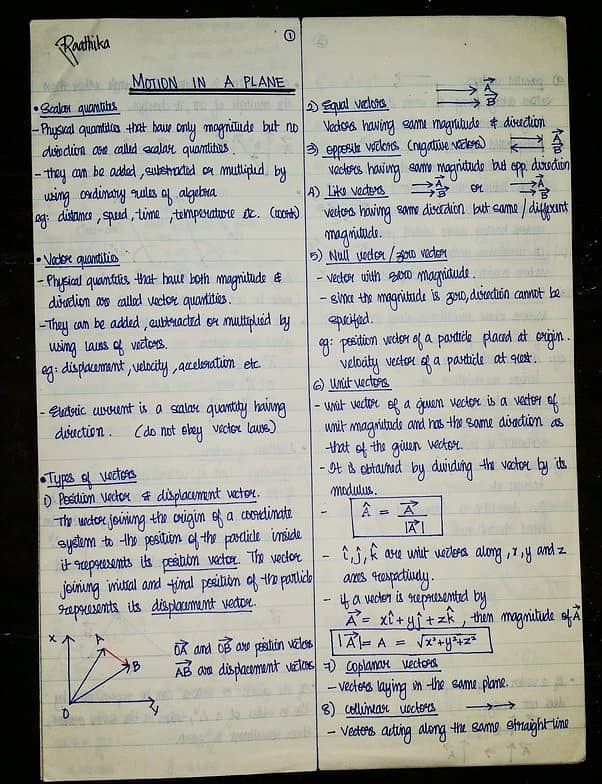 Raathika
①
MOTION IN A PLANE
• Scalar quantities
- Physical quantities that have only magnitude but no
direction are called scalar quantities.
- they can be added, substracted or multiplied by
using ordinary rules of algebra
eg: distance, speed, time, temperature etc. (work)
• Vector quantities
- Physical quantities that have both magnitude &
direction are called vector quantities.
- They can be added, subtracted or multiplied by
using laws of vectors.
eg: displacement, velocity, acceleration etc.
- Electric current is a scalar quantity having
direction. (do not obey vector laws)
• Types of vectors
1) Position vector & displacement vector.
The vector joining the origin of a coordinate
system to the position of the particle inside
it represents its position vector. The vector
joining initial and final position of the particle
represents its displacement vector.
X
A
B
O
Y
O⃗A and O⃗B are position vectors
A⃗B are displacement vectors
2) Equal vectors A⃗ B⃗
Vectors having same magnitude & direction
3) opposite vectors (negative vectors) A⃗ B⃗
vectors having same magnitude but opp. direction
4) Like vectors A⃗ B⃗ or A⃗ B⃗
vectors having same direction but same / different
magnitude.
5) Null vector / zero vector
- vector with zero magnitude.
- since the magnitude is zero, direction cannot be
specified.
eg: position vector of a particle placed at origin.
velocity vector of a particle at rest.
6) Unit vectors
- unit vector of a given vector is a vector of
unit magnitude and has the same direction as
that of the given vector.
- It is obtained by dividing the vector by its
modulus.
- Â = A⃗ / |A⃗|
- î, ĵ, k̂ are unit vectors along, x, y and z
axes respectively.
- if a vector is represented by
A⃗ = xî + yĵ + zk̂, then magnitude of A⃗
|A⃗| = A = √x²+y²+z²
7) Coplanar vectors
- vectors laying in the same plane.
8) collinear vectors
- vectors acting along the same straight line